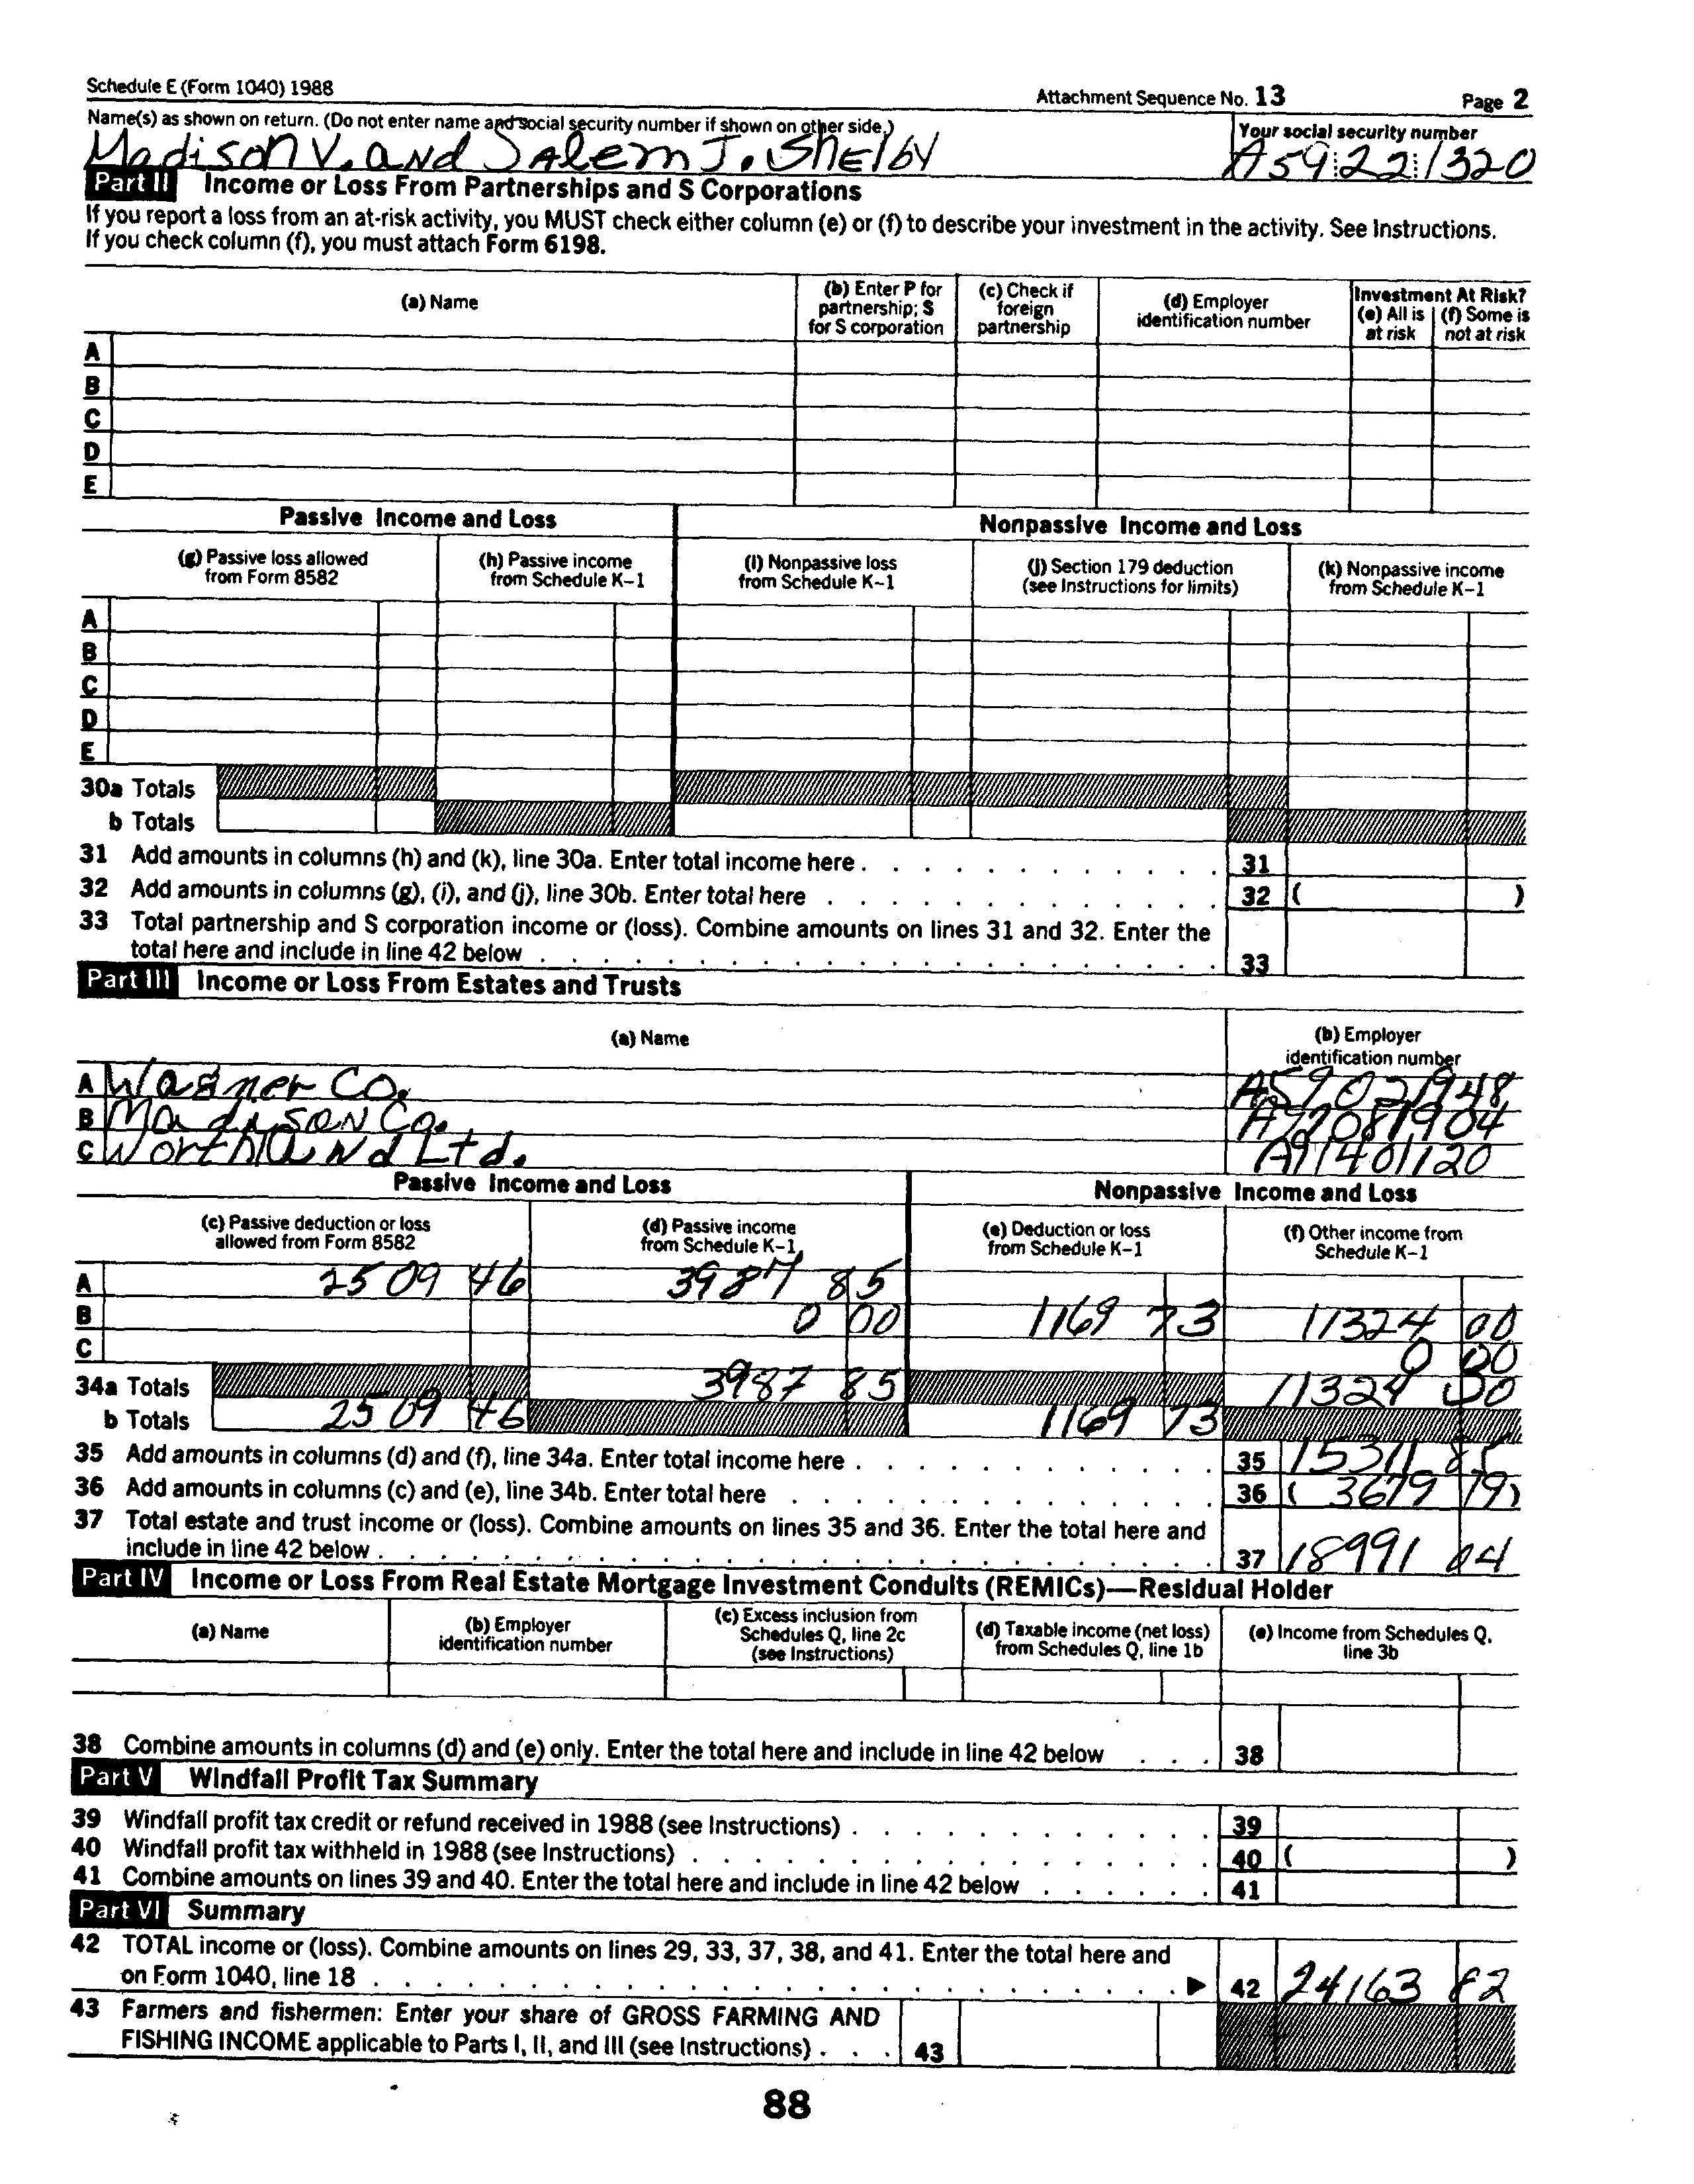 Schedule E (Form 1040) 1988 Attachment Sequence No. 13 Page 2
Name(s) as shown on return. (Do not enter name and social security number if shown on other side.) Your social security number
Madison V. and Salem J. Shelby A59 22 1320
Part II Income or Loss From Partnerships and S Corporations
If you report a loss from an at-risk activity, you MUST check either column (e) or (f) to describe your investment in the activity. See Instructions.
If you check column (f), you must attach Form 6198.
(a) Name (b) Enter P for partnership; S for S corporation (c) Check if foreign partnership (d) Employer identification number Investment At Risk? (e) All is at risk (f) Some is not at risk
A
B
C
D
E
Passive Income and Loss Nonpassive Income and Loss
(g) Passive loss allowed from Form 8582 (h) Passive income from Schedule K-1 (i) Nonpassive loss from Schedule K-1 (j) Section 179 deduction (see Instructions for limits) (k) Nonpassive income from Schedule K-1
A
B
C
D
E
30a Totals
b Totals
31 Add amounts in columns (h) and (k), line 30a. Enter total income here . 31
32 Add amounts in columns (g), (i), and (j), line 30b. Enter total here . 32 ( )
33 Total partnership and S corporation income or (loss). Combine amounts on lines 31 and 32. Enter the
total here and include in line 42 below . 33
Part III Income or Loss From Estates and Trusts
(a) Name (b) Employer identification number
A Wagner Co. A59021948
B Madison Co. A92081904
C Worthland Ltd. A91401120
Passive Income and Loss Nonpassive Income and Loss
(c) Passive deduction or loss allowed from Form 8582 (d) Passive income from Schedule K-1 (e) Deduction or loss from Schedule K-1 (f) Other income from Schedule K-1
A 2509 46 3987 85
B 0 00 1169 73 11324 00
C 0 00
34a Totals 3987 85 11324 00
b Totals 2509 46 1169 73
35 Add amounts in columns (d) and (f), line 34a. Enter total income here . 35 15311 85
36 Add amounts in columns (c) and (e), line 34b. Enter total here . 36 ( 3679 19)
37 Total estate and trust income or (loss). Combine amounts on lines 35 and 36. Enter the total here and
include in line 42 below . 37 18991 04
Part IV Income or Loss From Real Estate Mortgage Investment Conduits (REMICs)—Residual Holder
(a) Name (b) Employer identification number (c) Excess inclusion from Schedules Q, line 2c (see Instructions) (d) Taxable income (net loss) from Schedules Q, line 1b (e) Income from Schedules Q, line 3b
38 Combine amounts in columns (d) and (e) only. Enter the total here and include in line 42 below . 38
Part V Windfall Profit Tax Summary
39 Windfall profit tax credit or refund received in 1988 (see Instructions) . 39
40 Windfall profit tax withheld in 1988 (see Instructions) . 40 ( )
41 Combine amounts on lines 39 and 40. Enter the total here and include in line 42 below . 41
Part VI Summary
42 TOTAL income or (loss). Combine amounts on lines 29, 33, 37, 38, and 41. Enter the total here and
on Form 1040, line 18 . ▶ 42 24163 82
43 Farmers and fishermen: Enter your share of GROSS FARMING AND
FISHING INCOME applicable to Parts I, II, and III (see Instructions) . 43
88